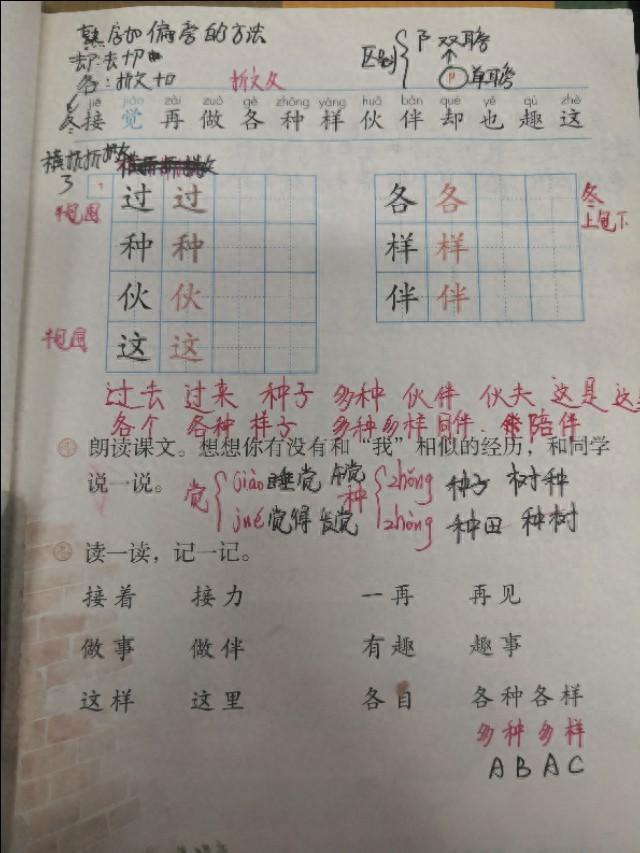 熟字加偏旁的方法
却:去切
区别 阝 双耳旁
卩 单耳旁
各:折文
折文
jiē jiào zài zuò gè zhǒng yàng huǒ bàn què yě qù zhè
接 觉 再 做 各 种 样 伙 伴 却 也 趣 这
过 过 各 各 冬
半包围 上包下
种 种 样 样
伙 伙 伴 伴
半包围 这 这
过去 过来 种子 多种 伙伴 伙夫 这是
各个 各种 样子 多种多样 同伴 陪伴
朗读课文。想想你有没有和“我”相似的经历,和同学
说一说。 觉 jiào 睡觉 午觉 种 zhǒng 种子 树种
jué 觉得 发觉 zhòng 种田 种树
读一读,记一记。
接着 接力 一再 再见
做事 做伴 有趣 趣事
这样 这里 各自 各种各样
多种多样
ABAC